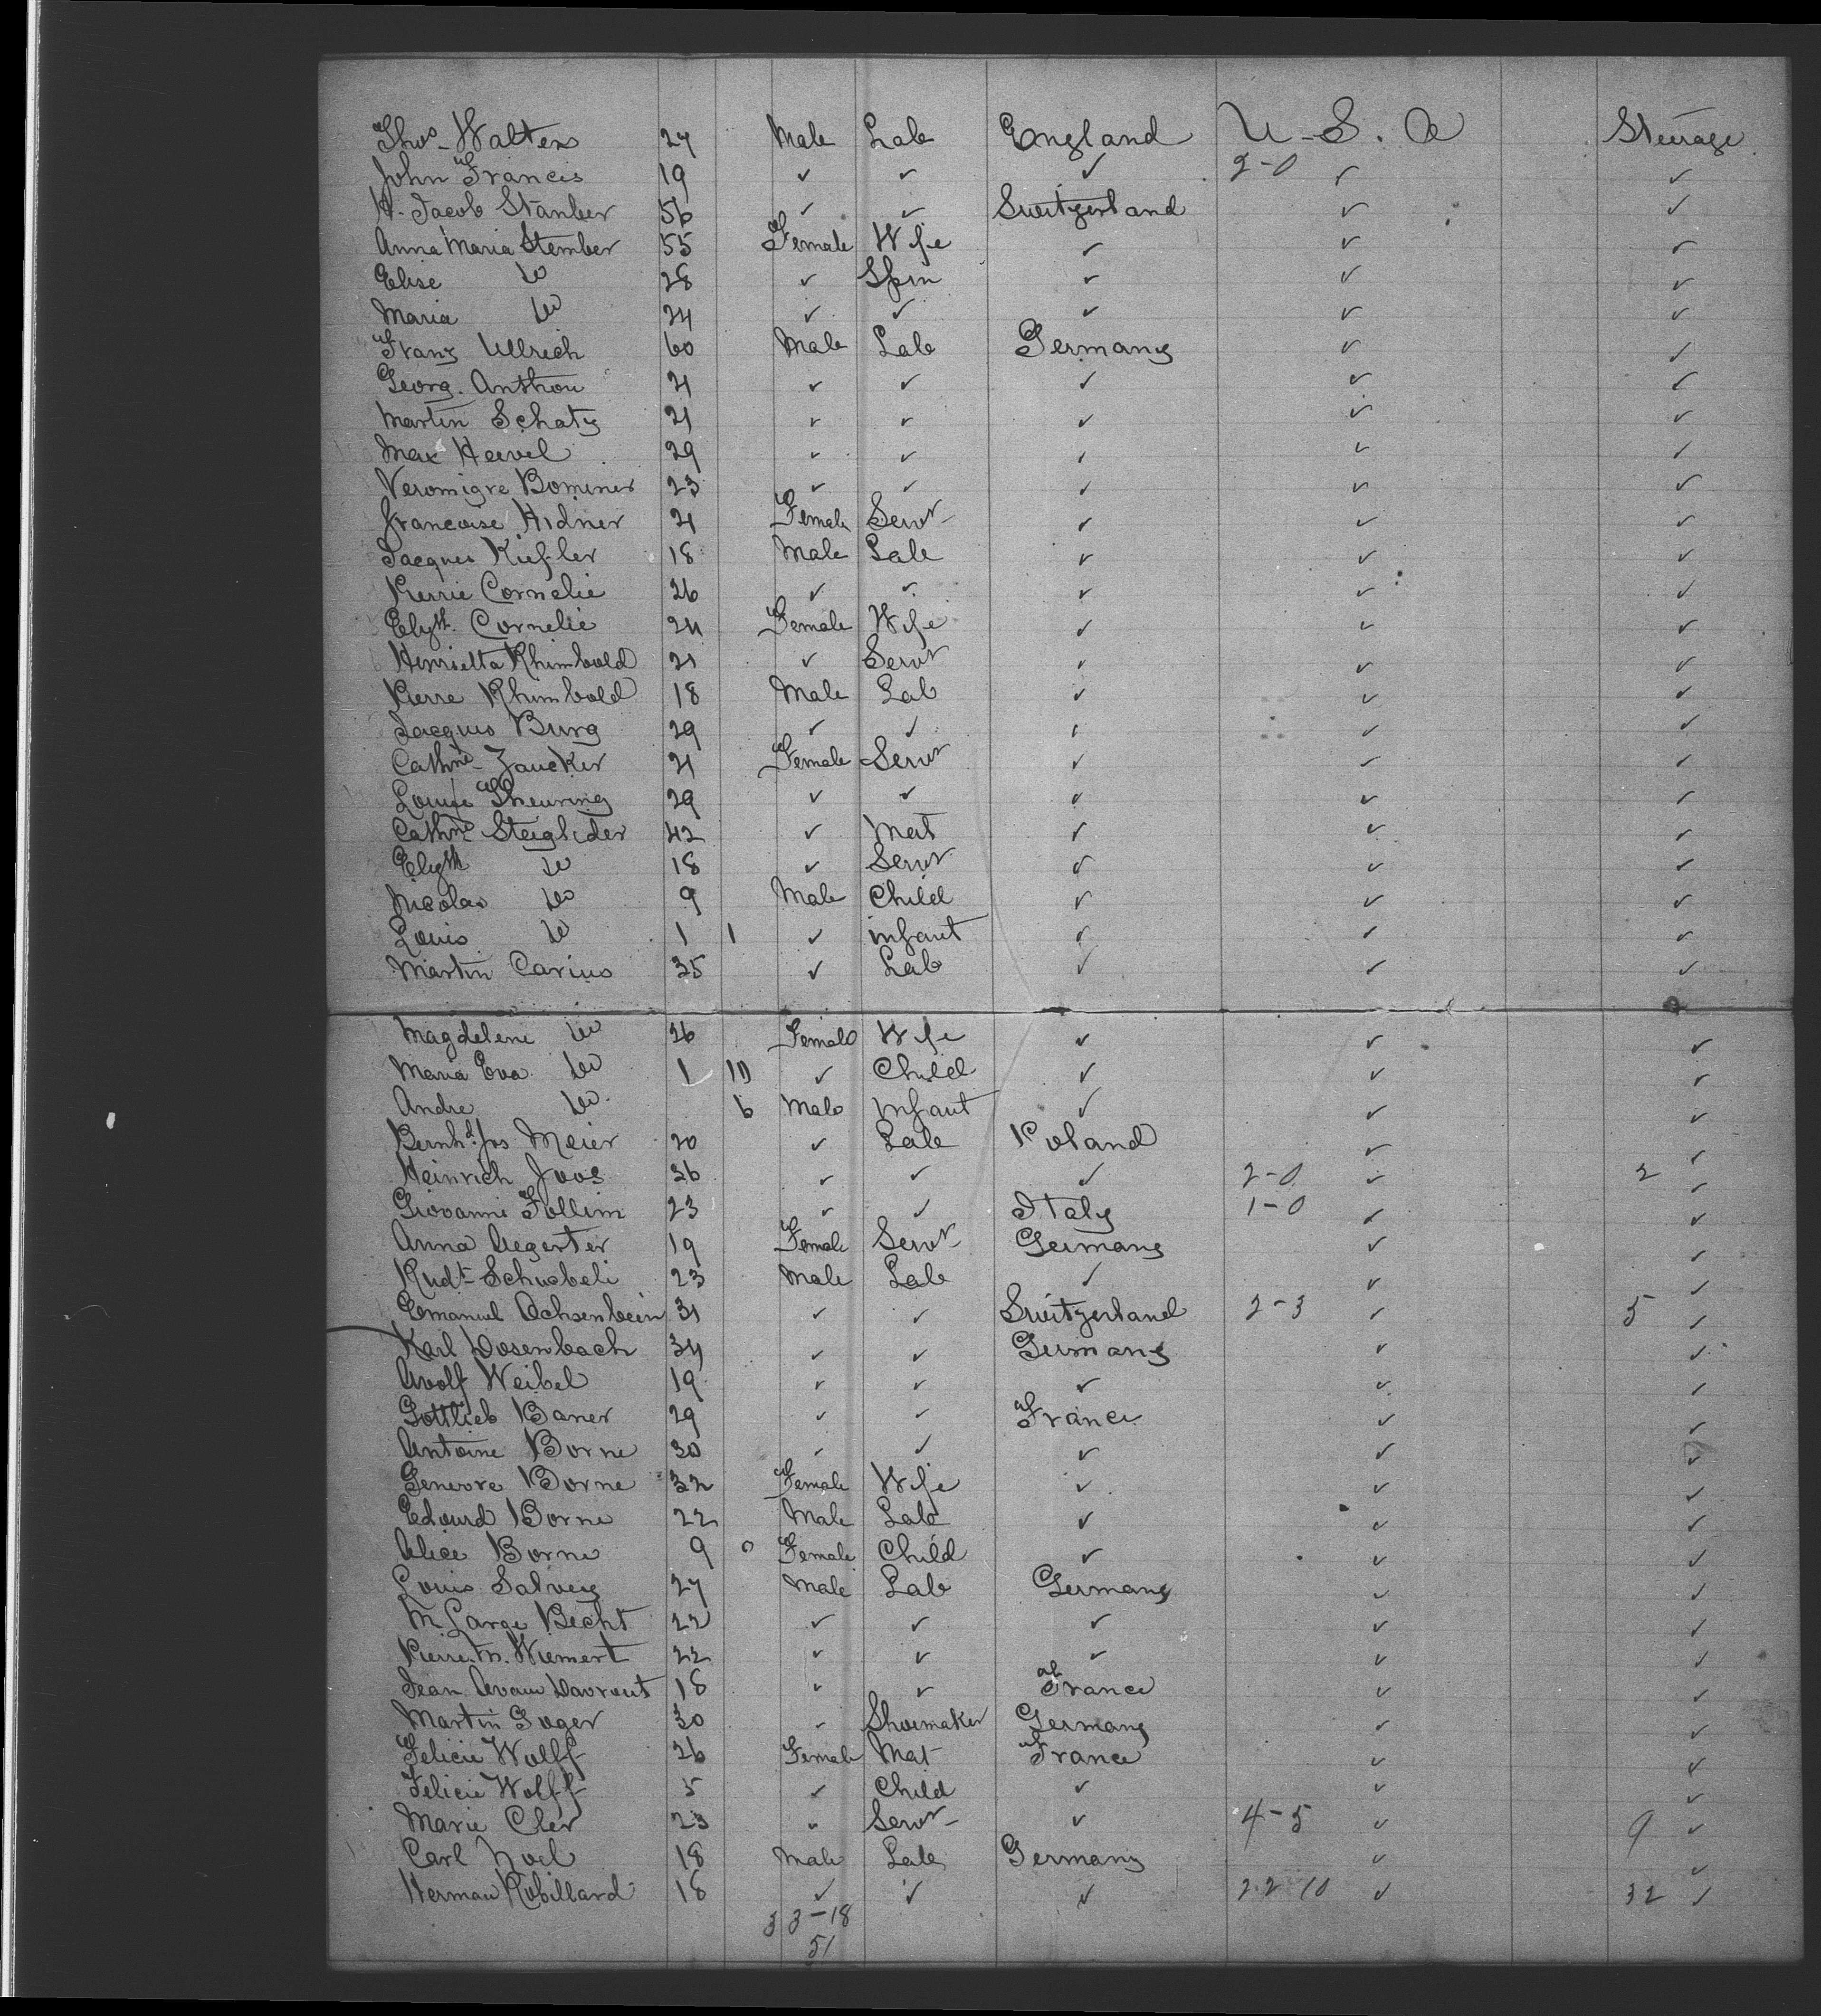 Thos. Walters 27 Male Lab England U. S. A Steerage
John Francis 19 ✓ ✓ ✓ 2-0 ✓ ✓
H. Jacob Stanber 56 ✓ ✓ Switzerland ✓ ✓
Anna Maria Stember 55 Female Wife ✓ ✓ ✓
Elise Do 28 ✓ Spin ✓ ✓ ✓
Maria Do 24 ✓ ✓ ✓ ✓ ✓
Franz Ullrich 60 Male Lab Germany ✓ ✓
Georg. Anthon 21 ✓ ✓ ✓ ✓ ✓
Martin Schatz 21 ✓ ✓ ✓ ✓ ✓
Max Hervel 29 ✓ ✓ ✓ ✓ ✓
Veronigve Bominer 23 ✓ ✓ ✓ ✓ ✓
Francoise Hidner 21 Female Servt ✓ ✓ ✓
Jacques Kiefler 18 Male Lab ✓ ✓ ✓
Pierrie Cornelie 26 ✓ ✓ ✓ ✓ ✓
Elyth. Cornelie 24 Female Wife ✓ ✓ ✓
Henrietta Rhimbold 21 ✓ Servt ✓ ✓ ✓
Pierre Rhimbold 18 Male Lab ✓ ✓ ✓
Jacques Burg 29 ✓ ✓ ✓ ✓ ✓
Cathne Zaucker 21 Female Servt ✓ ✓ ✓
Louise Theuring 29 ✓ ✓ ✓ ✓ ✓
Cathne Steiglider 42 ✓ Mat ✓ ✓ ✓
Elyth Do 18 ✓ Servt ✓ ✓ ✓
Nicolas Do 9 Male Child ✓ ✓ ✓
Louis Do 1 1 ✓ infant ✓ ✓ ✓
Martin Carius 35 ✓ Lab ✓ ✓ ✓
Magdelene Do 26 Female Wife ✓ ✓ ✓
Maria Eva Do 1 10 ✓ Child ✓ ✓ ✓
Andre Do. 6 Male Infant ✓ ✓ ✓
Bernhd. Jos Meier 20 ✓ Lab Poland ✓ ✓
Heinrich Joos 36 ✓ ✓ ✓ 2-0 ✓ 2 ✓
Giovanni Follim 23 ✓ ✓ Italy 1-0 ✓ ✓
Anna Aegerter 19 Female Servt Germany ✓ ✓
Rudt Schnebeli 23 Male Lab ✓ ✓ ✓
Emanuel Ochsenbein 31 ✓ ✓ Switzerland 2-3 ✓ 5 ✓
Karl Dosenbach 34 ✓ ✓ Germany ✓ ✓
Avolf Weibel 19 ✓ ✓ ✓ ✓ ✓
Gottlieb Baner 29 ✓ ✓ France ✓ ✓
Antoine Borne 30 ✓ ✓ ✓ ✓ ✓
Genevre Borne 32 Female Wife ✓ ✓ ✓
Edourd Borne 22 Male Lab ✓ ✓ ✓
Alice Borne 9 0 Female Child ✓ ✓ ✓
Louis Salvey 27 Male Lab Germany ✓ ✓
M Large Becht 22 ✓ ✓ ✓ ✓ ✓
Pierre. M. Wiemert 22 ✓ ✓ ✓ ✓ ✓
Jean 18 ✓ ✓ France ✓ ✓
Martin Soger 30 ✓ Shoemaker Germany ✓ ✓
Felicie Wolff 26 Female Mat France ✓ ✓
Felicie Wolff 5 ✓ Child ✓ ✓ ✓
Marie Cler 23 ✓ Servt ✓ 4-5 ✓ 9 ✓
Carl Noel 18 Male Lab Germany ✓ ✓
Herman Robillard 18 ✓ ✓ ✓ 22 10 ✓ 32 ✓
33-18
51